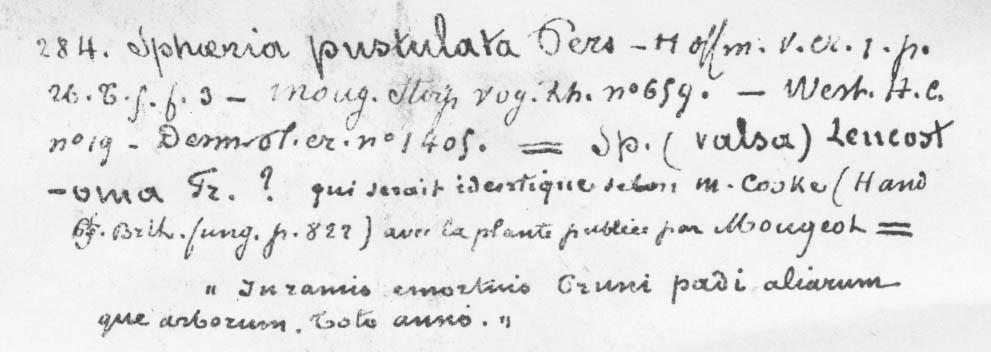 284. Sphæria pustulata Pers – Hoffm. v. cr. 1. p.
26. T. 5. f. 3 – Moug. Stirp vog. Rh. nº 659. – West. H. C.
nº 19 – Desm. cr. nº 1405. = Sp. (valsa) Leucost
–oma Fr. ? qui serait identique selon M. Cooke (Hand
Brith. fung. p. 827) avec la plante publiée par Mougeot =
" In ramis emortuis Pruni padi aliarum
que arborum. Toto anno. "